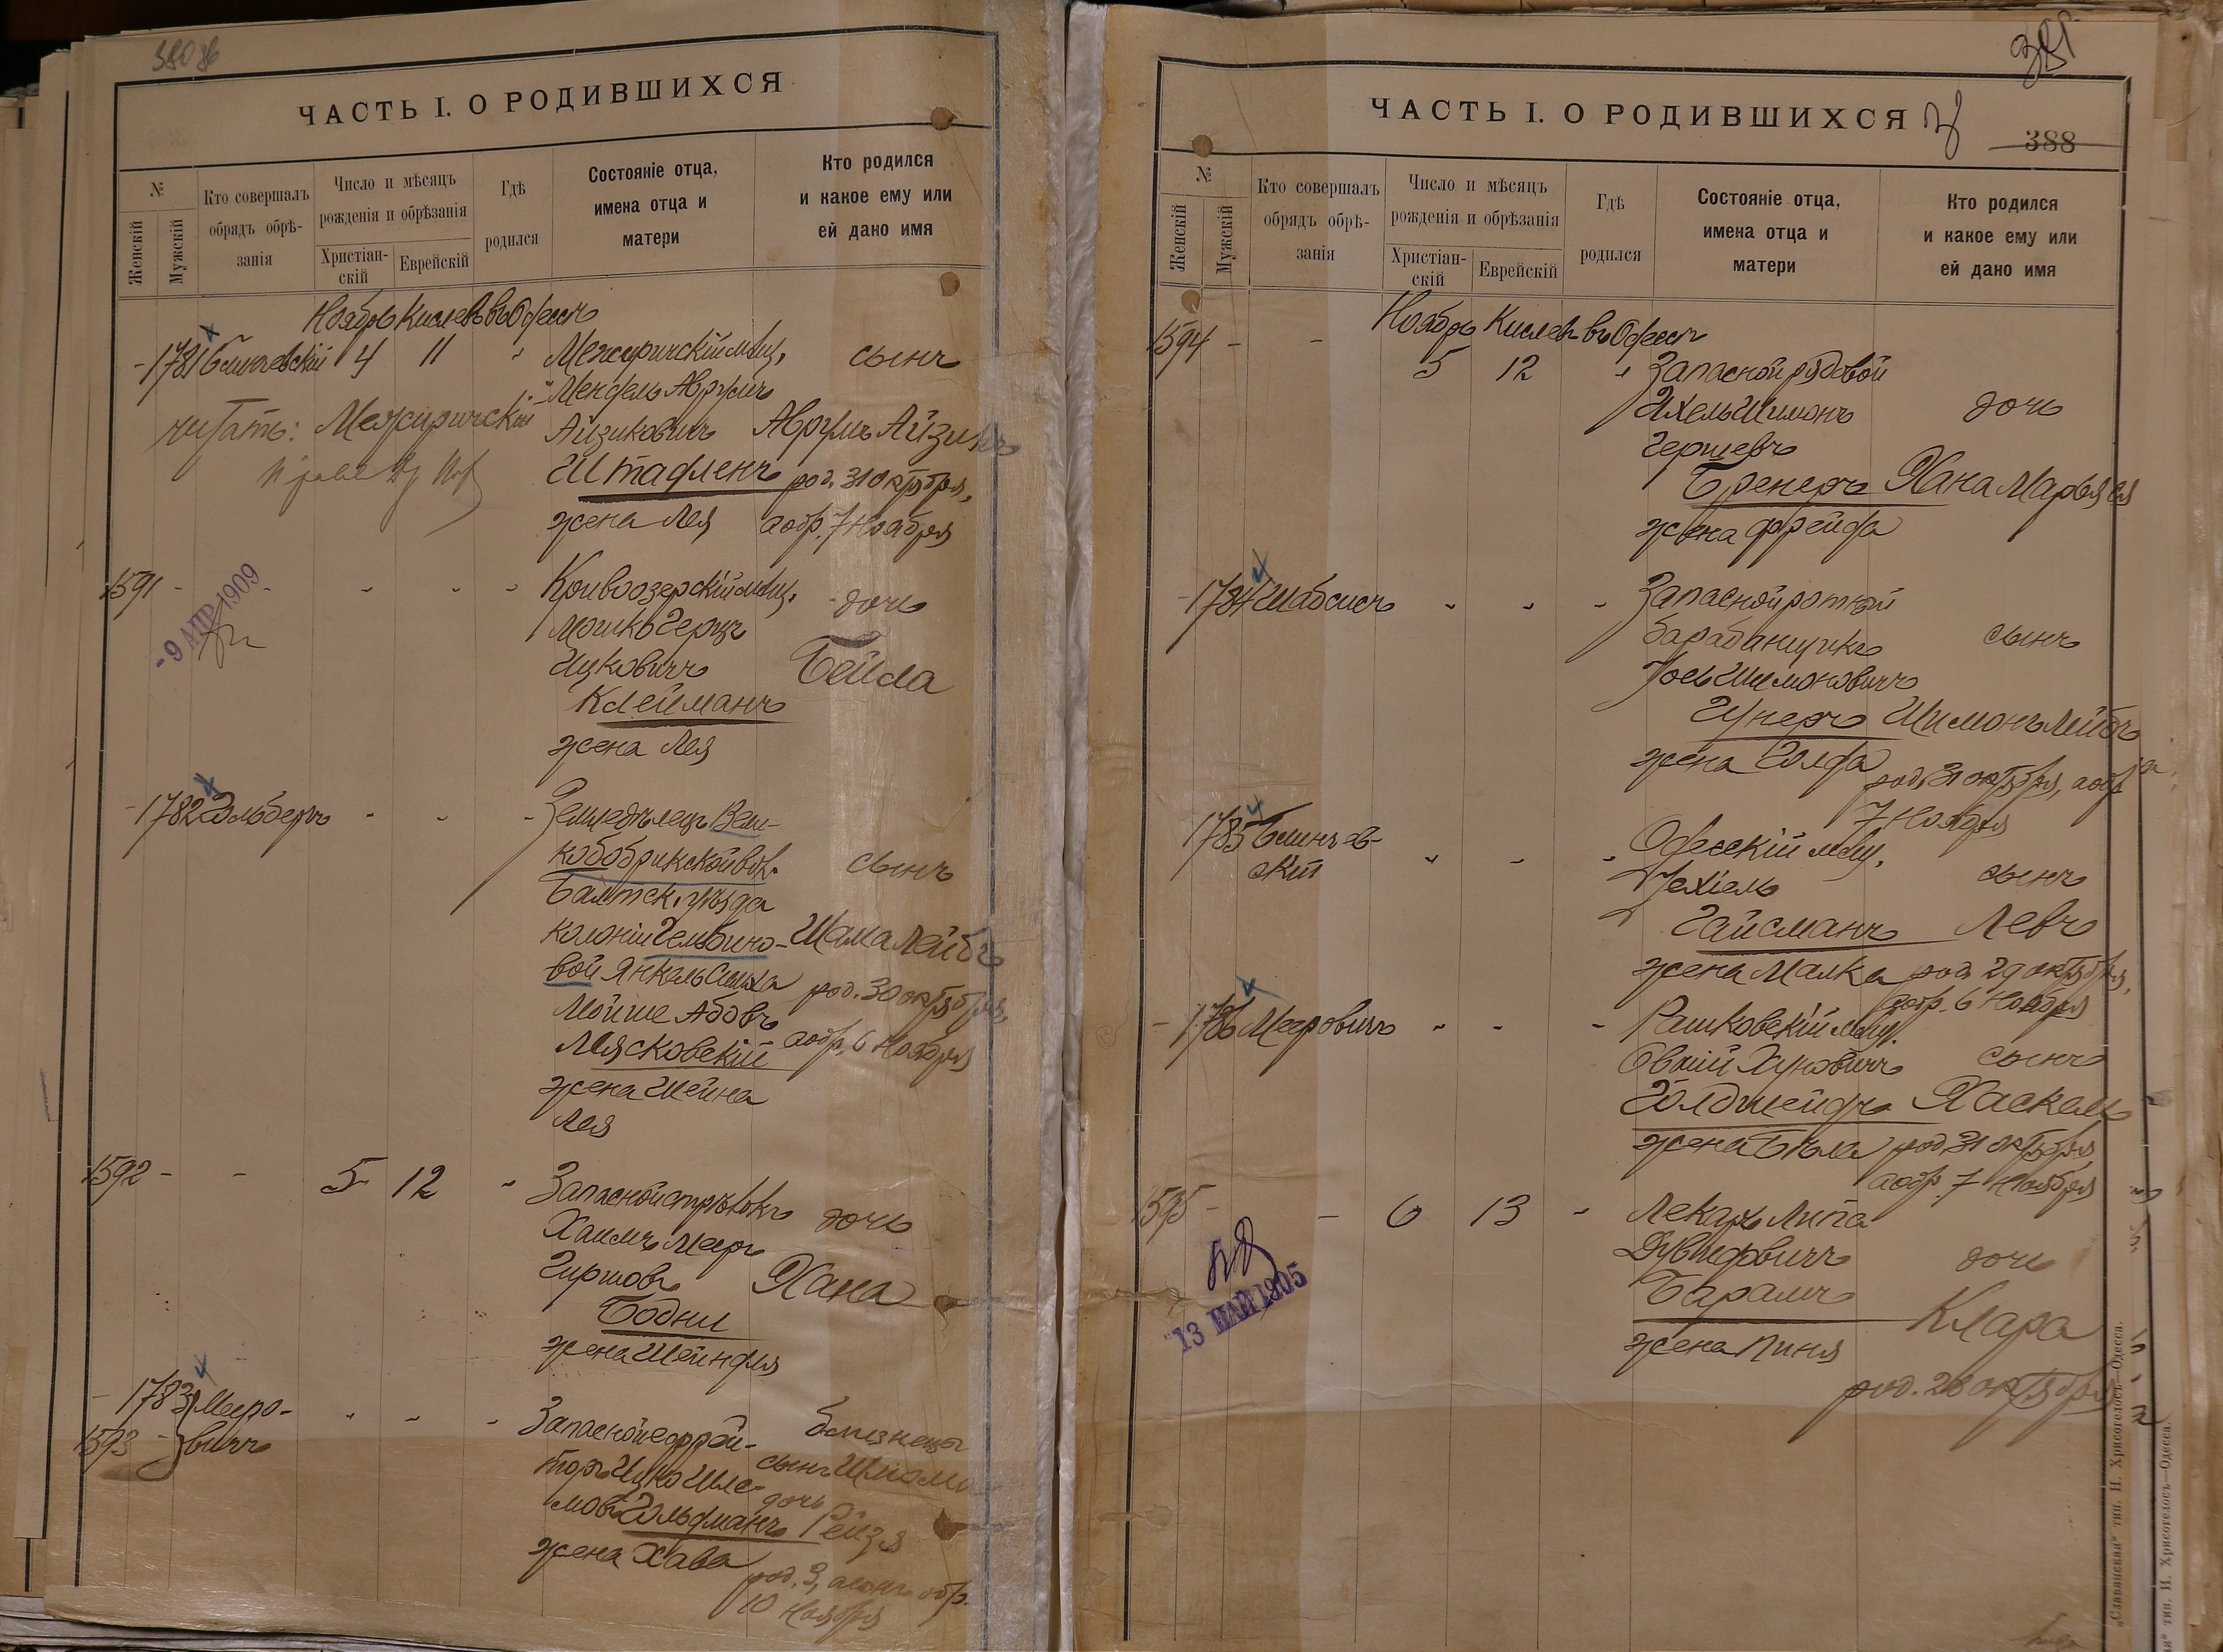 ЧАСТЬ I. О РОДИВШИХСЯ
№
Женскій
Мужскій
Кто совершалъ обрядъ обрѣ-занія
Число и мѣсяцъ рожденія и обрѣзанія
Христіан-скій
Еврейскій
Гдѣ родился
Состояніе отца, имена отца и матери
Кто родился и какое ему или ей дано имя
Ноябрь Кислевъ въ Одессѣ
1781 4 11 Межиричскій мѣщ. сынъ
Мендель Аврумъ
читать: Межиричскій
Айзиковичъ Аврумъ Айзикъ
Штафленъ род. 31 октября,
жена Лея а обр. 7 Ноября
1591 Кривоозерскій мѣщ. дочь
-9 АПР 1909
Мошко Герцъ
Ицковичъ Бейла
Клейманъ
жена Лея
1782 Гольберъ Земледѣлецъ Вели-
кобобрикской вол. сынъ
Балтск. уѣзда
колоніи Гельбино- Шама Лейбъ
вой Янкель Симха род. 30 октября,
Мойше Абовъ а обр. 6 Ноября
Лясковскій
жена Шейна
Лея
1592 5 12 Запасной стрѣлокъ дочь
Хаимъ Мееръ
Гиршовъ Хана
Бодня
жена Шейндля
1783 Мееро- Запасной ефрей- близнецы
1593 вичъ торъ Ицко Шле- сынъ Шлома
мовъ Гольдманъ дочь Рейзя
жена Хава род. 3, а сынъ обр.
10 Ноября
ЧАСТЬ I. О РОДИВШИХСЯ
388
№
Женскій
Мужскій
Кто совершалъ обрядъ обрѣ-занія
Число и мѣсяцъ рожденія и обрѣзанія
Христіан-скій
Еврейскій
Гдѣ родился
Состояніе отца, имена отца и матери
Кто родился и какое ему или ей дано имя
Ноябрь Кислевъ въ Одессѣ
1594 5 12 Запасной рядовой
Ихель Шимонъ дочь
Гершевъ
Бренеръ Хана Марьяся
жена Фрейда
1784 Шабсисъ Запасной ротный
барабанщикъ сынъ
Іось Шимоновичъ
Гунеръ Шимонъ Лейбъ
жена Голда род. 31 октября, а обр.
7 Ноября
1785 Блинчев-скій Одесскій мѣщ.
Іехіель сынъ
Гайсманъ Левъ
жена Малка род. 29 октября,
а обр. 6 Ноября
1786 Мееровичъ Рашковскій мѣщ.
Овшій Хуновичъ сынъ
Голдшейдъ Хаскель
жена Бѣла род. 31 октября,
а обр. 7 Ноября
1595 6 13 Лекарь Липа
дочь
13 МАЙ 1905
Барамъ Клара
жена Пиня
род. 28 октября
„Славянская“ тип. Н. Хрисогелосъ—Одесса.
тип. Н. Хрисогелосъ—Одесса.